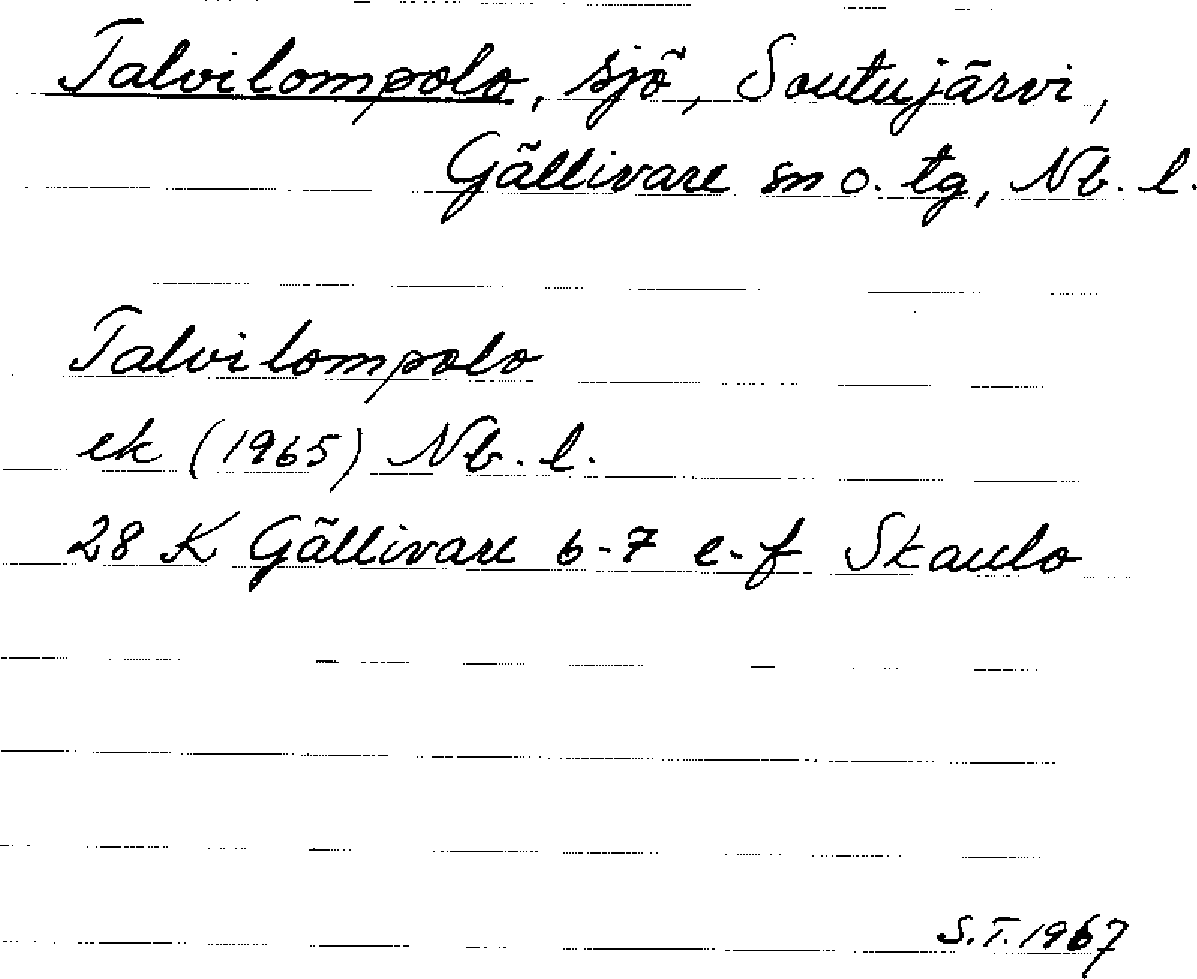 Talvilompolo, sjö, Soutujärvi,
Gällivare sn o. tg, Nb. l.
Talvilompolo
ek (1965) Nb. l.
28 K Gällivare 6-7 e-f Skaulo
S.T. 1967